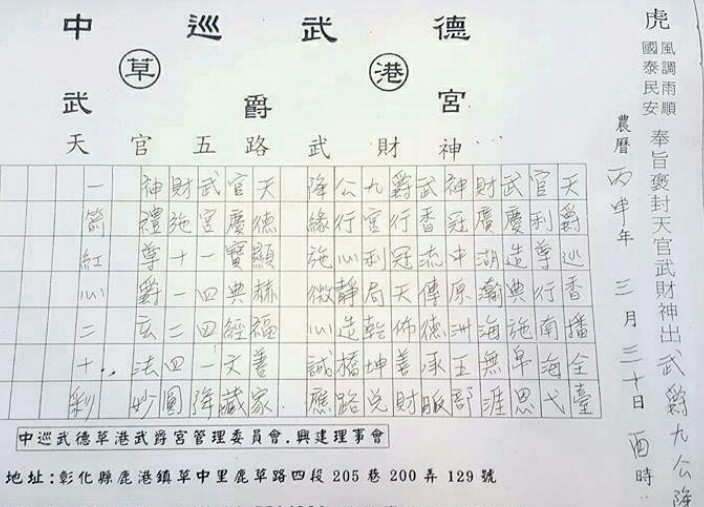 虎
風調雨順
國泰民安
奉旨褒封天官武財神出武爵九公降
農曆丙申年三月三十日酉時
中巡武德
草港
武爵宮
天官五路武財神
天爵巡香播全臺
官利尊行南海弋
武慶造典施帛恩
財廣湖瀚海無涯
神冠中原洲玉部
武香流傳德承脈
爵行冠天佈善財
九宮利局乾坤兌
公行心靜造橋路
降緣施微心誠應
天德顯赫福善家
官慶寶典經文藏
武宮一四四一降
財施十一二四圓
神禮尊爵玄法妙
一箭紅心二十彩
中巡武德草港武爵宮管理委員會．興建理事會
地址：彰化縣鹿港鎮草中里鹿草路四段205巷200弄129號